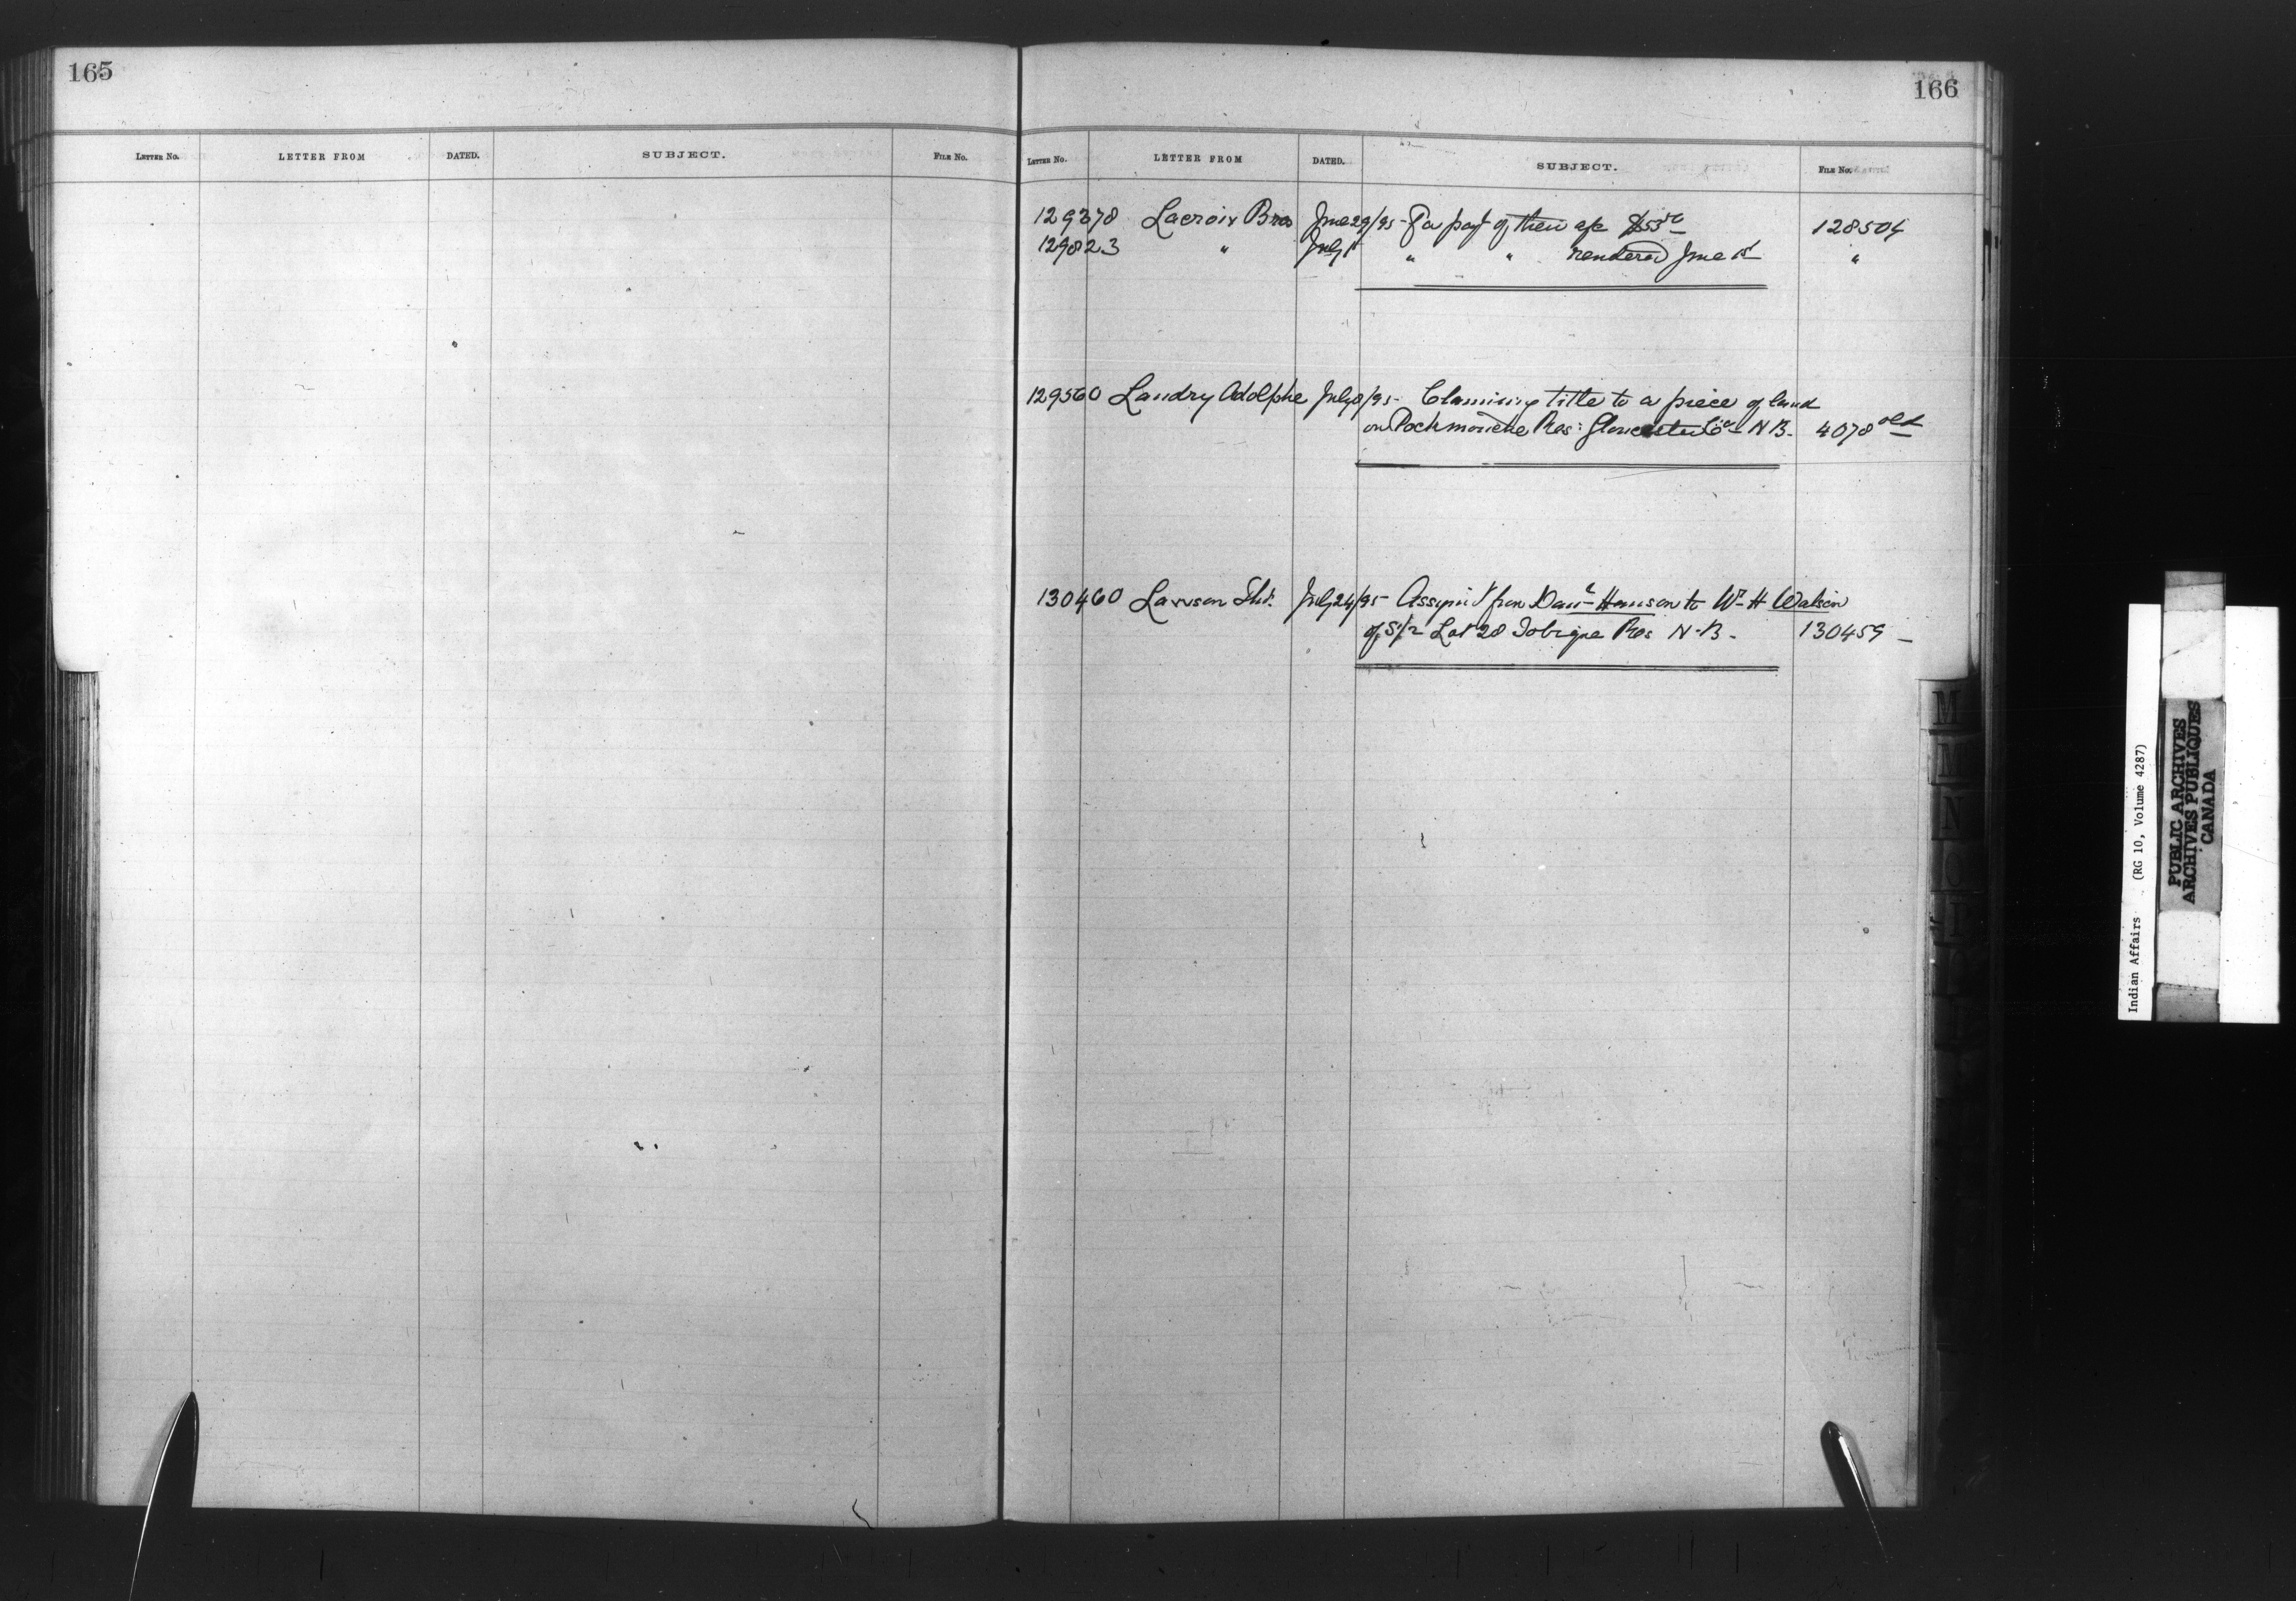 165
LETTER NO. LETTER FROM DATED. SUBJECT. FILE NO.
166
LETTER NO. LETTER FROM DATED. SUBJECT. FILE NO.
129378 Lacroix Bros June 29/95 - For payt of their a/c $53 128504
129823 " July " " rendered June 1st "
129560 Landry Adolphe July 8/95 - Claiming title to a piece of land
on Pockmouche Res: Gloucester Co - N B - 4078 old
130460 Lawson Thos. July 24/95 - Assignt from Danl Hanson to Wm H Watson
of S 1/2 Lot 28 Tobique Res N.B. - 130459 -
M
M
N
O
Indian Affairs (RG 10, Volume 4287)
PUBLIC ARCHIVES
ARCHIVES PUBLIQUES
CANADA